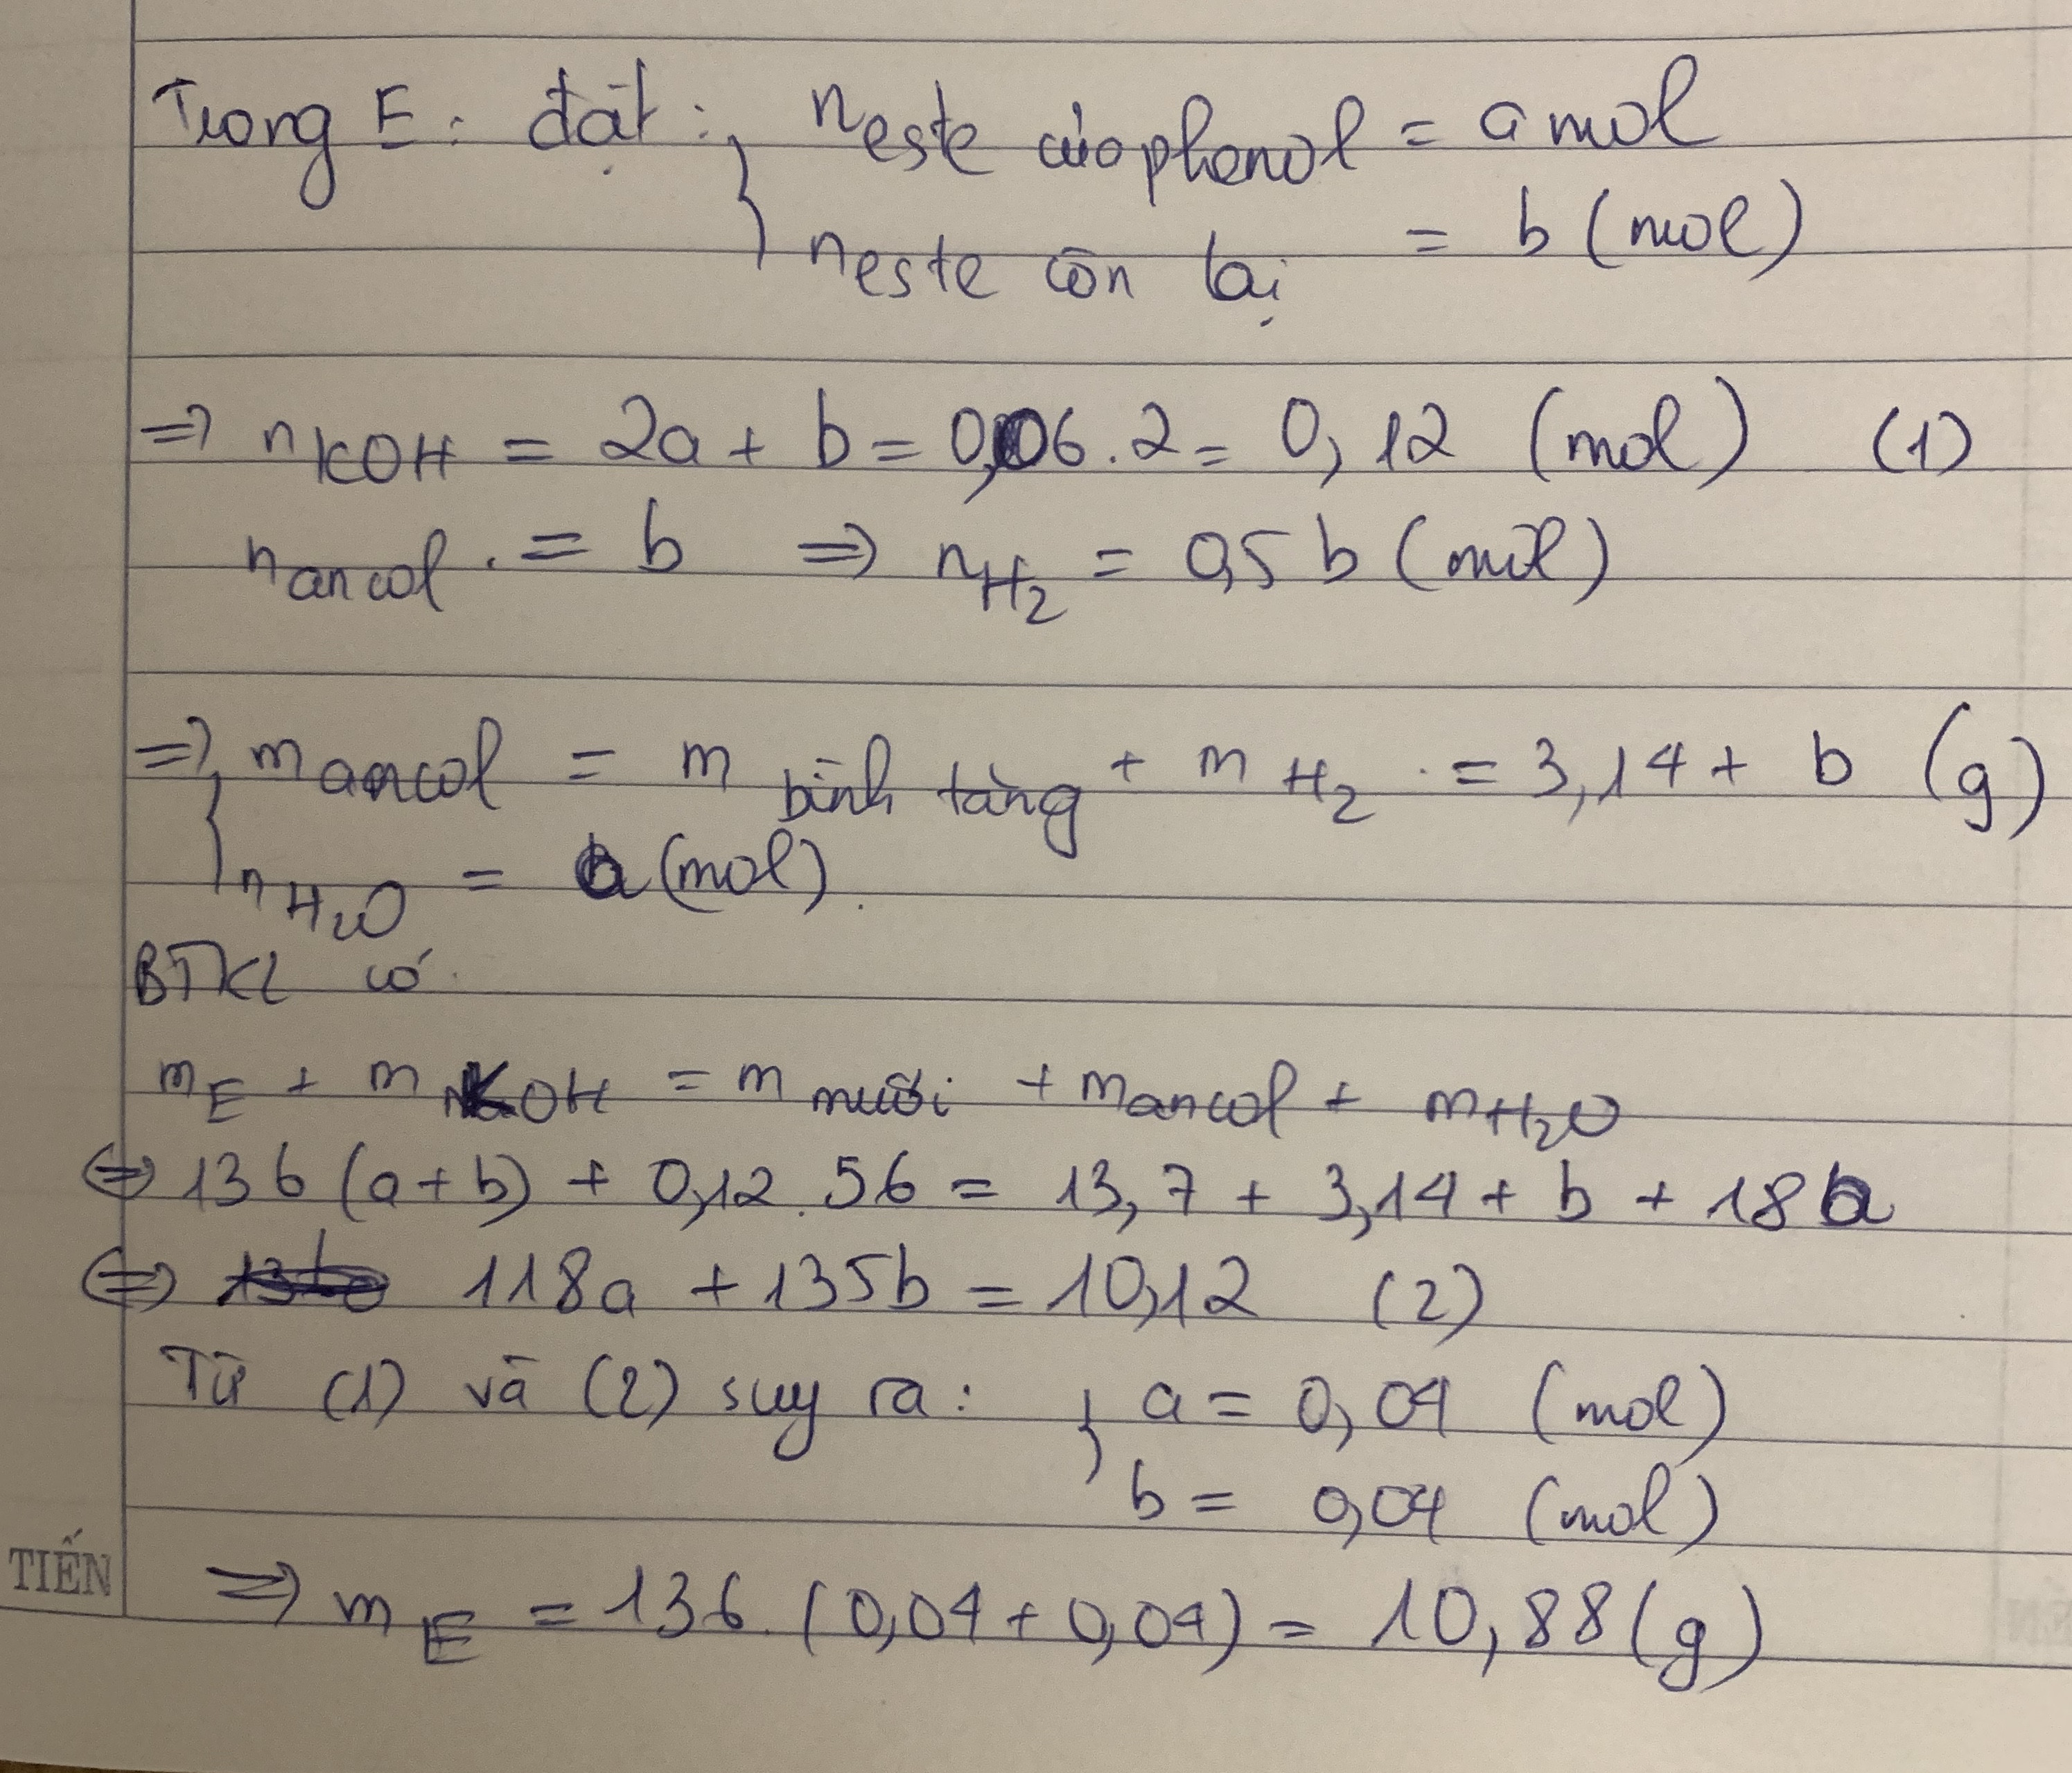 Trong E: đặt: { n este của phenol = a mol
n este còn lại = b (mol)
=> nKOH = 2a + b = 0,06.2 = 0,12 (mol) (1)
n ancol = b => nH2 = 0,5 b (mol)
=> { m ancol = m bình tăng + mH2 = 3,14 + b (g)
nH2O = a (mol).
BTKL có
mE + mKOH = m muối + m ancol + mH2O
<=> 136 (a+b) + 0,12.56 = 13,7 + 3,14 + b + 18a
<=> 118a + 135b = 10,12 (2)
Từ (1) và (2) suy ra: { a = 0,04 (mol)
b = 0,04 (mol)
TIẾN
=> mE = 136.(0,04+0,04) = 10,88 (g)